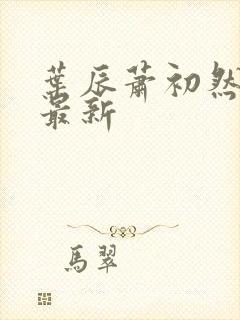 葉辰蕭初然
最新
馬翠